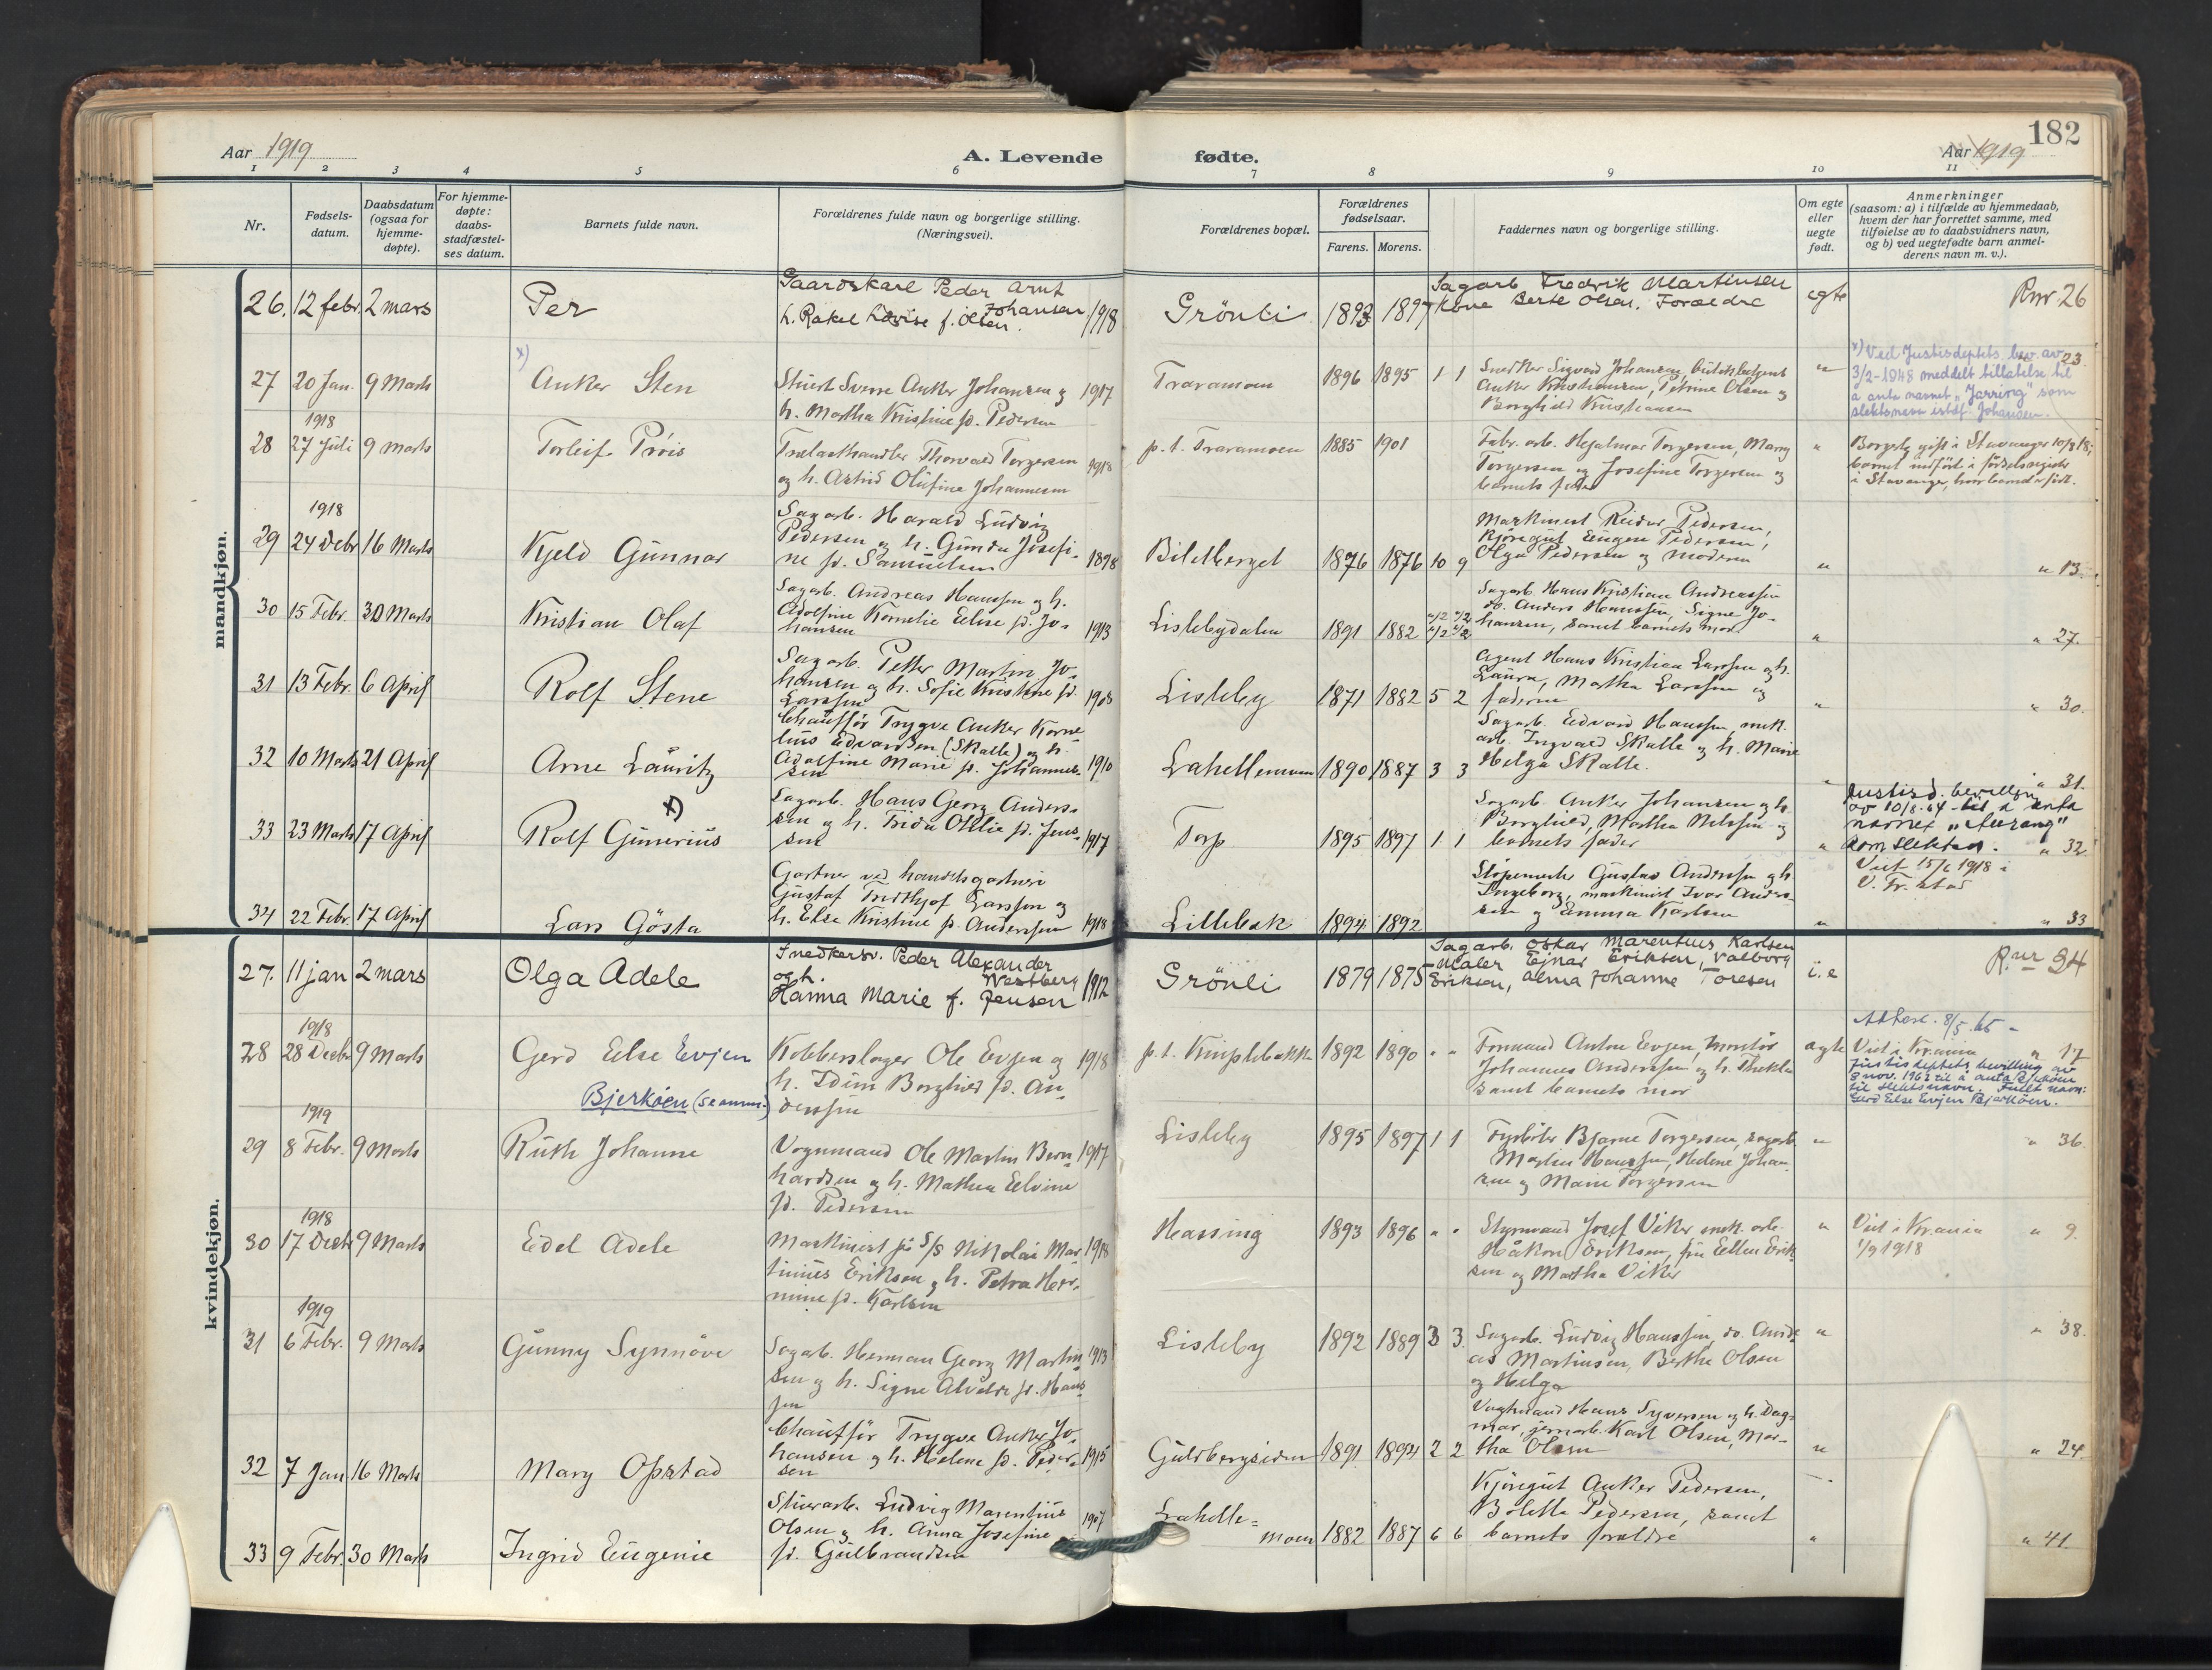 Aar 1919
A. Levende
1 2 3 4 5 6
Nr.
Fødsels-
datum.
Daabsdatum
(ogsaa for
hjemme-
døpte).
For hjemme-
døpte:
daabs-
stadfæstel-
ses datum.
Barnets fulde navn.
Forældrenes fulde navn og borgerlige stilling.
(Næringsvei).
fødte.
182
Aar 1919
7 8 9 10 11
Forældrenes bopæl.
Forældrenes
fødselsaar.
Farens. Morens.
Faddernes navn og borgerlige stilling.
Om egte
eller
uegte
født.
Anmerkninger
(saasom: a) i tilfælde av hjemmedaab,
hvem der har forrettet samme, med
tilføielse av to daabsvidners navn,
og b) ved uegtefødte barn anmel-
derens navn m. v.).
mandkjøn.
26. 12 febr. 2 mars
Per
Gaardskarl Peder Arnt
Johansen
h. Rakel Lovise f. Olsen. 1918
Grönli 1893 1897
Sagarb Fredrik Martinsen
Kone Berte Olsen. Forældre
egte
Rnr 26
27 20 Jan. 9 Marts
x)
Anker Sten
Stuert Sverre Anker Johansen og 1917
h. Martha Kristine fd. Pedersen
Traramoen 1896 1895 1 1
Snedker Sigvard Johansen, butikbetjent
Anker Kristiansen, Petrine Olsen og
Borghild Kristiansen
"
" 23.
x) Ved Justisdeptets bev. av
3/2-1948 meddelt tillatelse til
å anta navnet "Jarring" som
slektsnavn istdf. Johansen.
1918
28 27 Juli 9 Marts
Torleif Prôis
Trælasthandler Thorvald Torgersen 1918
og h. Astrid Olufine Johannesen
p. t. Traramoen 1885 1901
Fabr. arb. Hjalmar Torgersen, Marry
Torgersen og Josefine Torgersen og
barnets fader
"
Borgerlig gift i Stavanger 10/8 18;
barnet indført i fødselsregister
i Stavanger, hvor barnet er født.
1918
29 24 Debr 16 Marts
Kjeld Gunnar
Sagarb. Harald Ludvig
Pedersen og h. Gunda Josefi-
ne fd. Samuelsen 1898
Bildtberget 1876 1876 10 9
Maskinist Reidar Pedersen,
kjøregut Eugen Pedersen,
Olga Pedersen og moderen
"
" 13.
30 15 Febr. 30 Marts
Kristian Olaf
Sagarb. Andreas Hanssen og h.
Adolfine Kornelie Eline fd. Jo-
hansen 1913
Lislebydalen 1891 1882
Sagarb. Hans Kristian Andreassen
do. Anders Hanssen, Signe Jo-
hansen, samt barnets mor.
"
" 27.
31 13 Febr. 6 April
Rolf Stene
Sagarb. Petter Martin Jo-
hansen og h. Sofie Kristine fd.
Larssen 1908
Lisleby 1871 1882 5 2
Agent Hans Kristian Larssen og h.
Laura, Martha Larssen og
faderen
"
" 30.
32 10 Marts 21 April
Arne Lauritz
Chauffør Trygve Anker Korne-
lius Edvardsen (Skalle) og h.
Adolfine Marie fd. Johannes-
sen 1910
Lahellemoen 1890 1887 3 3
Sagarb. Edvard Hanssen, mek.
arb. Ingvald Skalle og h. Marie
Helga Skalle.
"
" 31.
33 23 Marts 17 April
x)
Rolf Gunerius
Sagarb. Hans Georg Anders-
sen og h. Frida Ottilie fd. Jens-
sen 1917
Torp 1895 1897 1 1
Sagarb. Anker Johansen og h.
Borghild, Martha Nilssen og
barnets fader
"
Justisd. bevilling
av 10/8-64 til å anta
navnet
som slektsn.
" 32.
34 22 Febr. 17 April
Lars Gösta
Gartner ved handelsgartneri
Gustaf Fridthjof Larsson og
h. Else Kristine fd. Anderssen 1918
Lillebæk 1894 1892
Støpemester Gustav Anderssen og h.
Ingeborg, maskinist Ivar Anders-
sen og Emma Karlsen
"
Viet 15/6 1918 i
V. Fr. stad
" 33
kvindekjøn.
27. 11 jan 2 mars
Olga Adele
Snedkersv. Peder Alexander
og h. Westberg
Hanna Marie f. Jensen 1912
Grönli 1879 1875
Sagarb. Oskar Marentius Karlsen
Maler Ejnar Eriksen, Valborg
Eriksen, Alma Johanne Toresen
u. e
R.nr 24
1918
28 28 Decbr 9 Marts
Gerd Else Evjen
Bjerköen (se anm.)
Kobberslager Ole Evjen og 1918
h. Idun Borghild fd. An-
derssen
p. t. Kniplebakken 1892 1890 " "
Formand Anton Evjen, montør
Johannes Anderssen og h. Thekla
samt barnets mor
egte
Attest. 8/5.65 -
Viet i Kr.ania
" 17
Justisdeptets bevilling av
8 nov. 1962 til å anta Bjerköen
til slektsnavn. Fullt navn:
Gerd Else Evjen Bjerköen.
1919
29 8 Febr. 9 Marts
Ruth Johanne
Vognmand Ole Martin Bern- 1917
hardsen og h. Mathea Elvine
fd. Pedersen
Lisleby 1895 1897 1 1
Fyrbøter Bjarne Torgersen, sagarb.
Martin Hanssen, Helene Johan-
sen og Marie Torgersen
"
" 36.
1918
30 17 Decbr 9 Marts
Edel Adele
Maskinist på S/S Nikolai Mar- 1918
tinius Eriksen og h. Petra Her-
mine fd. Karlsen
Hassing 1893 1896 " "
Styrmand Josef Viker mek. arb.
Håkon Eriksen, frk Ellen Erik-
sen og Martha Viker
"
Viet i Kr.ania
1/9 1918
" 9.
1919
31 6 Febr. 9 Marts
Gunny Synnöve
Sagarb. Herman Georg Martin- 1913
sen og h. Signe Alvilde fd. Hans-
sen
Lisleby 1892 1889 3 3.
Sagarb. Ludvig Hanssen, do. Andre-
as Martinsen, Berthe Olsen
og Helga
"
" 38.
32 7 Jan. 16 Marts
Mary Opstad
Chauffør Trygve Anker Jo-
hansen og h. Helene fd. Peder- 1915
sen
Guldbergsiden 1891 1894 2 2
Vagtmand Hans Syversen og h. Dag-
mar, jernarb. Karl Olsen, Mar-
tha Olsen
"
" 24.
33 9 Febr. 30 Marts
Ingrid Eugenie
Stuerarb. Ludvig Marentius 1907
Olsen og h. Anna Josefine
fd. Gulbrandsen
Lahelle-
moen 1882 1887 6 6
Kjøregut Anker Pedersen,
Bolette Pedersen, samt
barnets forældre
"
" 41.